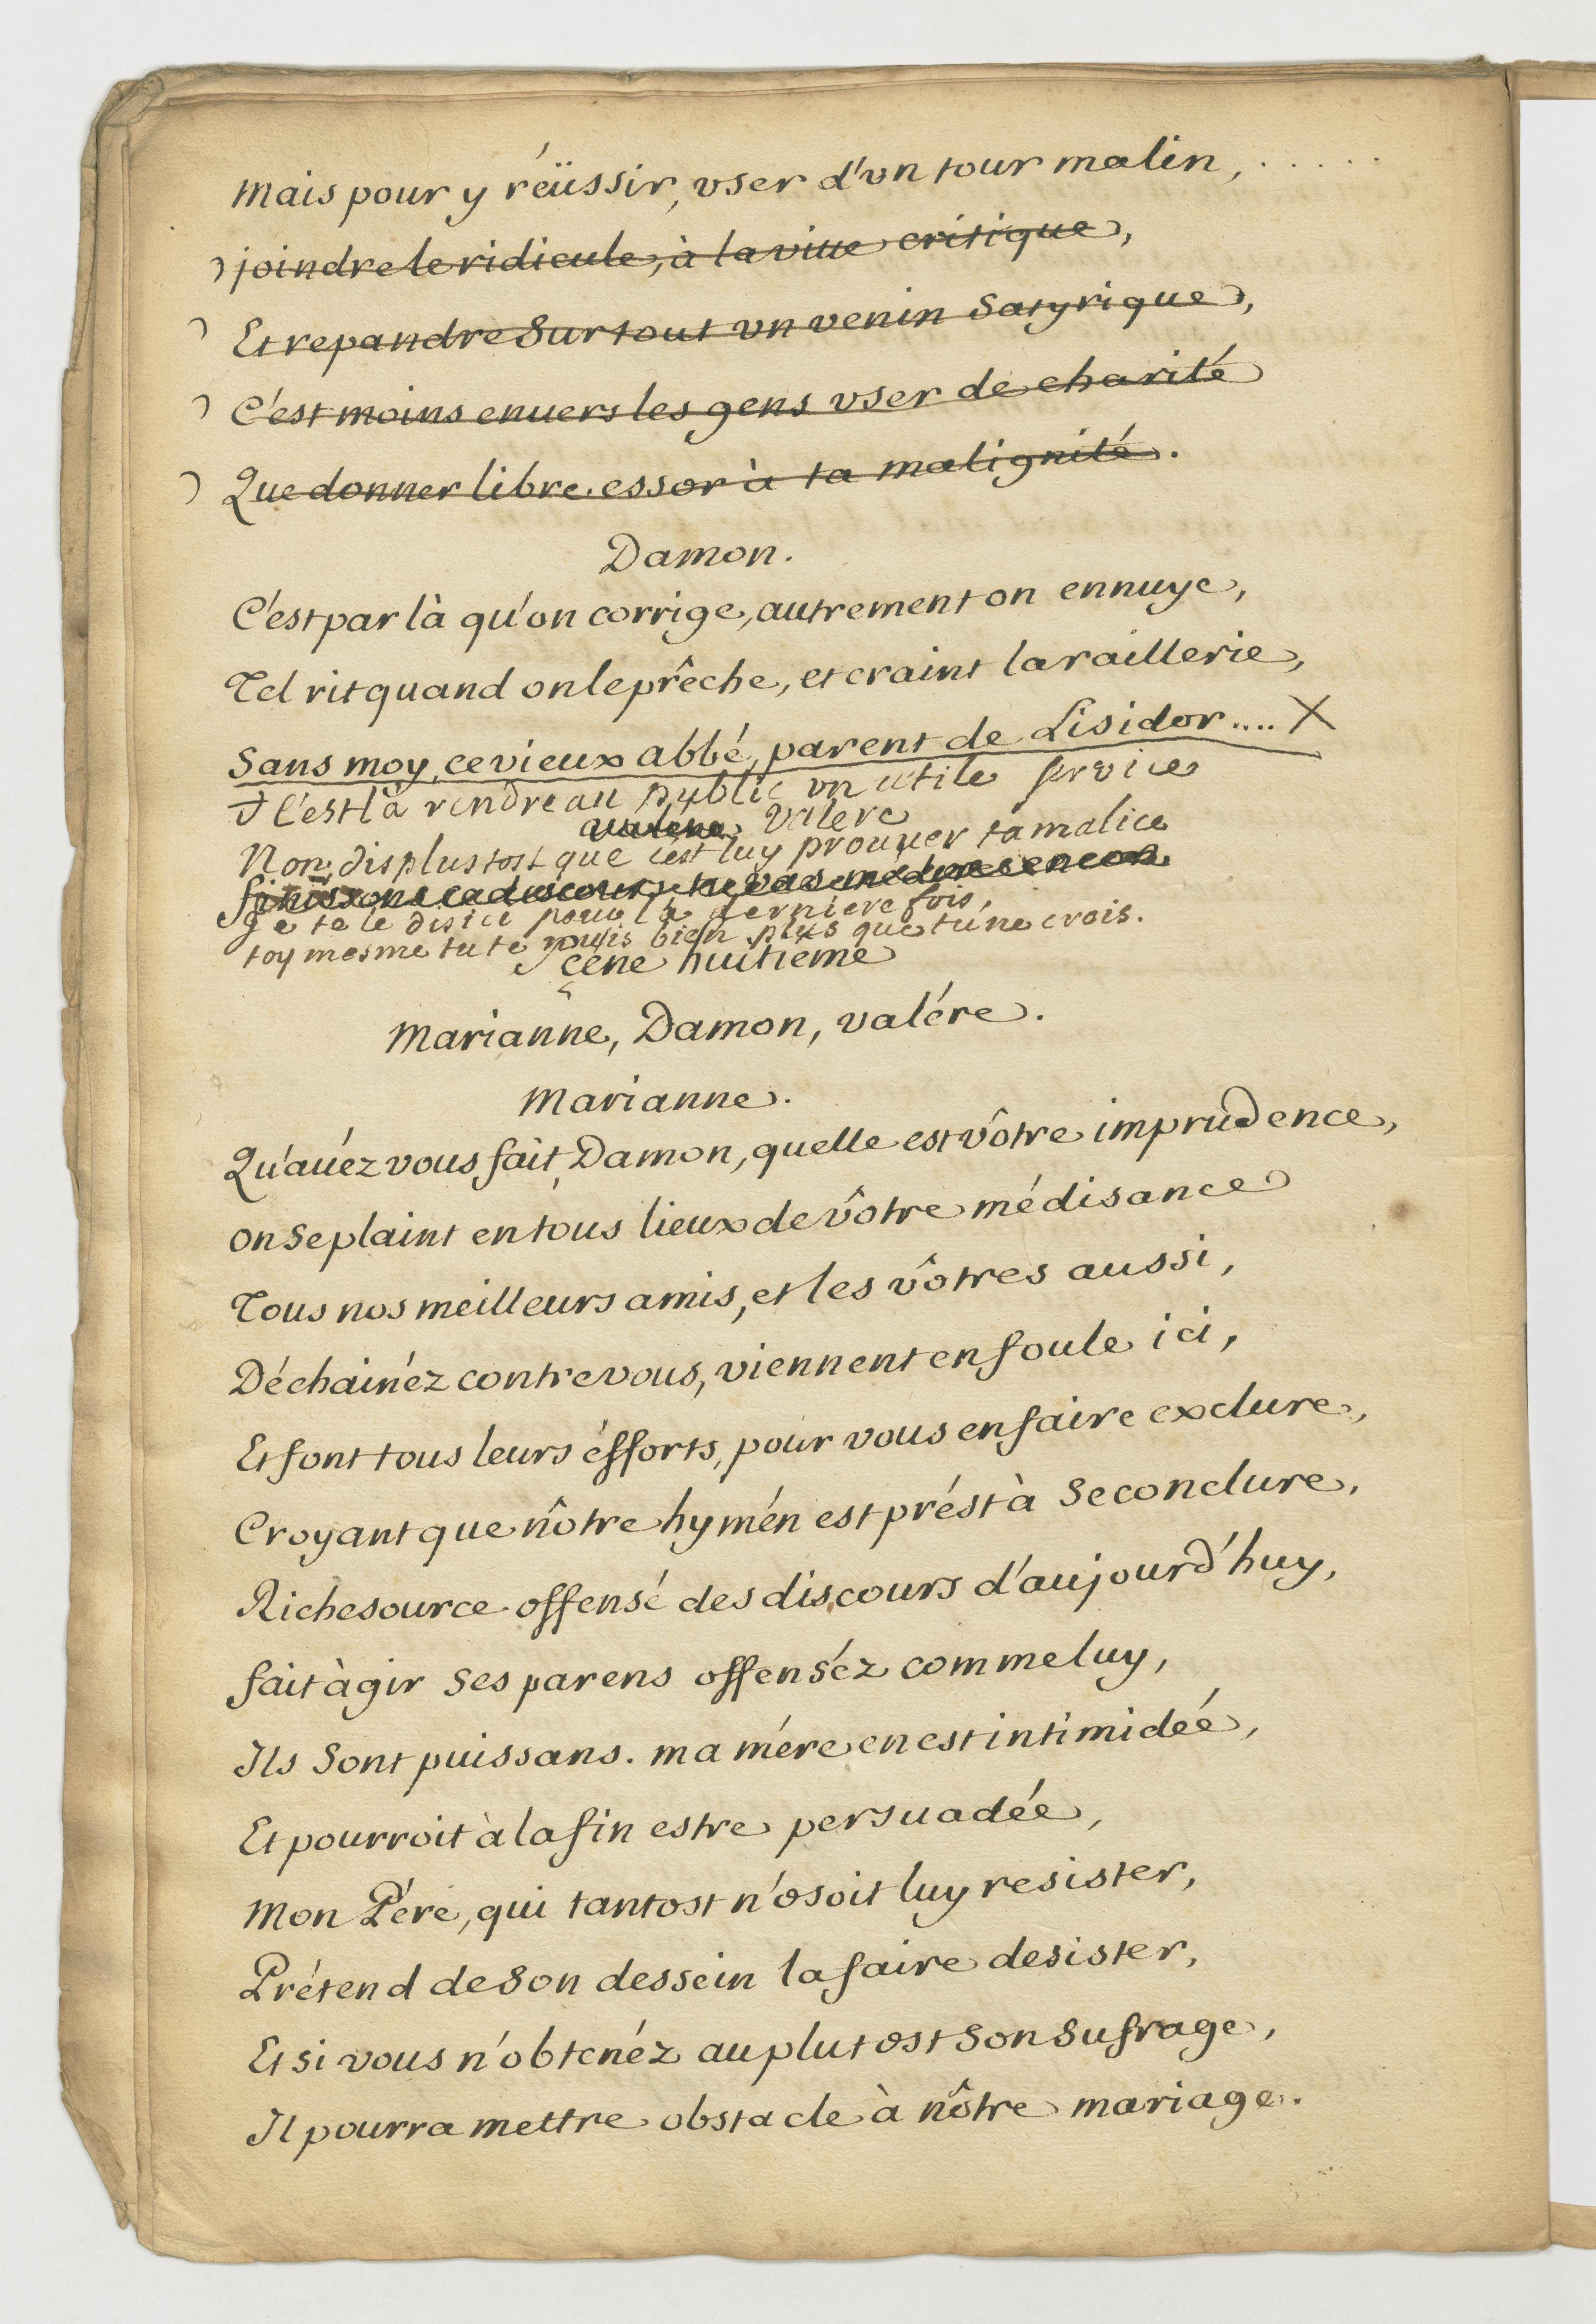 Mais pour y réüssir, vser d'vn tour malin, . . . . .
joindre le ridicule, à la viue critique,
Et repandre Sur tout vn venin Satyrique,
C'est moins enuers les gens vser de charité
Que donner libre essor à ta malignité.
Damon.
C'est par là qu'on corrige, autrement on ennuye,
Tel rit quand on le prêche, et craint la raillerie,
Sans moy, ce vieux abbé, parent de Lisidor.... X
+ C'est là rendre au public vn utile service
valére valere
Non, dis plustost que c'est luy prouuer ta malice
finissons ce discours, tu vas médire encor
Je te le dis ici pour la derniere fois,
toy mesme tu te nuis bien plus que tu ne crois.
çéne huitiéme
Marianne, Damon, valére.
Marianne.
Qu'auéz vous fait, Damon, quelle est vôtre imprudence,
on Se plaint en tous lieux de vôtre médisance
Tous nos meilleurs amis, et les vôtres aussi,
Déchainéz contre vous, viennent en foule ici,
Et font tous leurs éfforts, pour vous en faire exclure,
Croyant que nôtre hymén est prést à Se conclure,
Richesource offensé des discours d'aujourd'huy,
fait àgir Ses parens offenséz comme luy,
Ils Sont puissans. ma mére en est intimideé,
Et pourroit à la fin estre persuadée,
Mon Pére, qui tantost n'osoit luy resister,
Prétend de Son dessein la faire desister,
Et si vous n'obtenéz au plutost Son Sufrage,
Il pourra mettre obstacle à nôtre mariage.